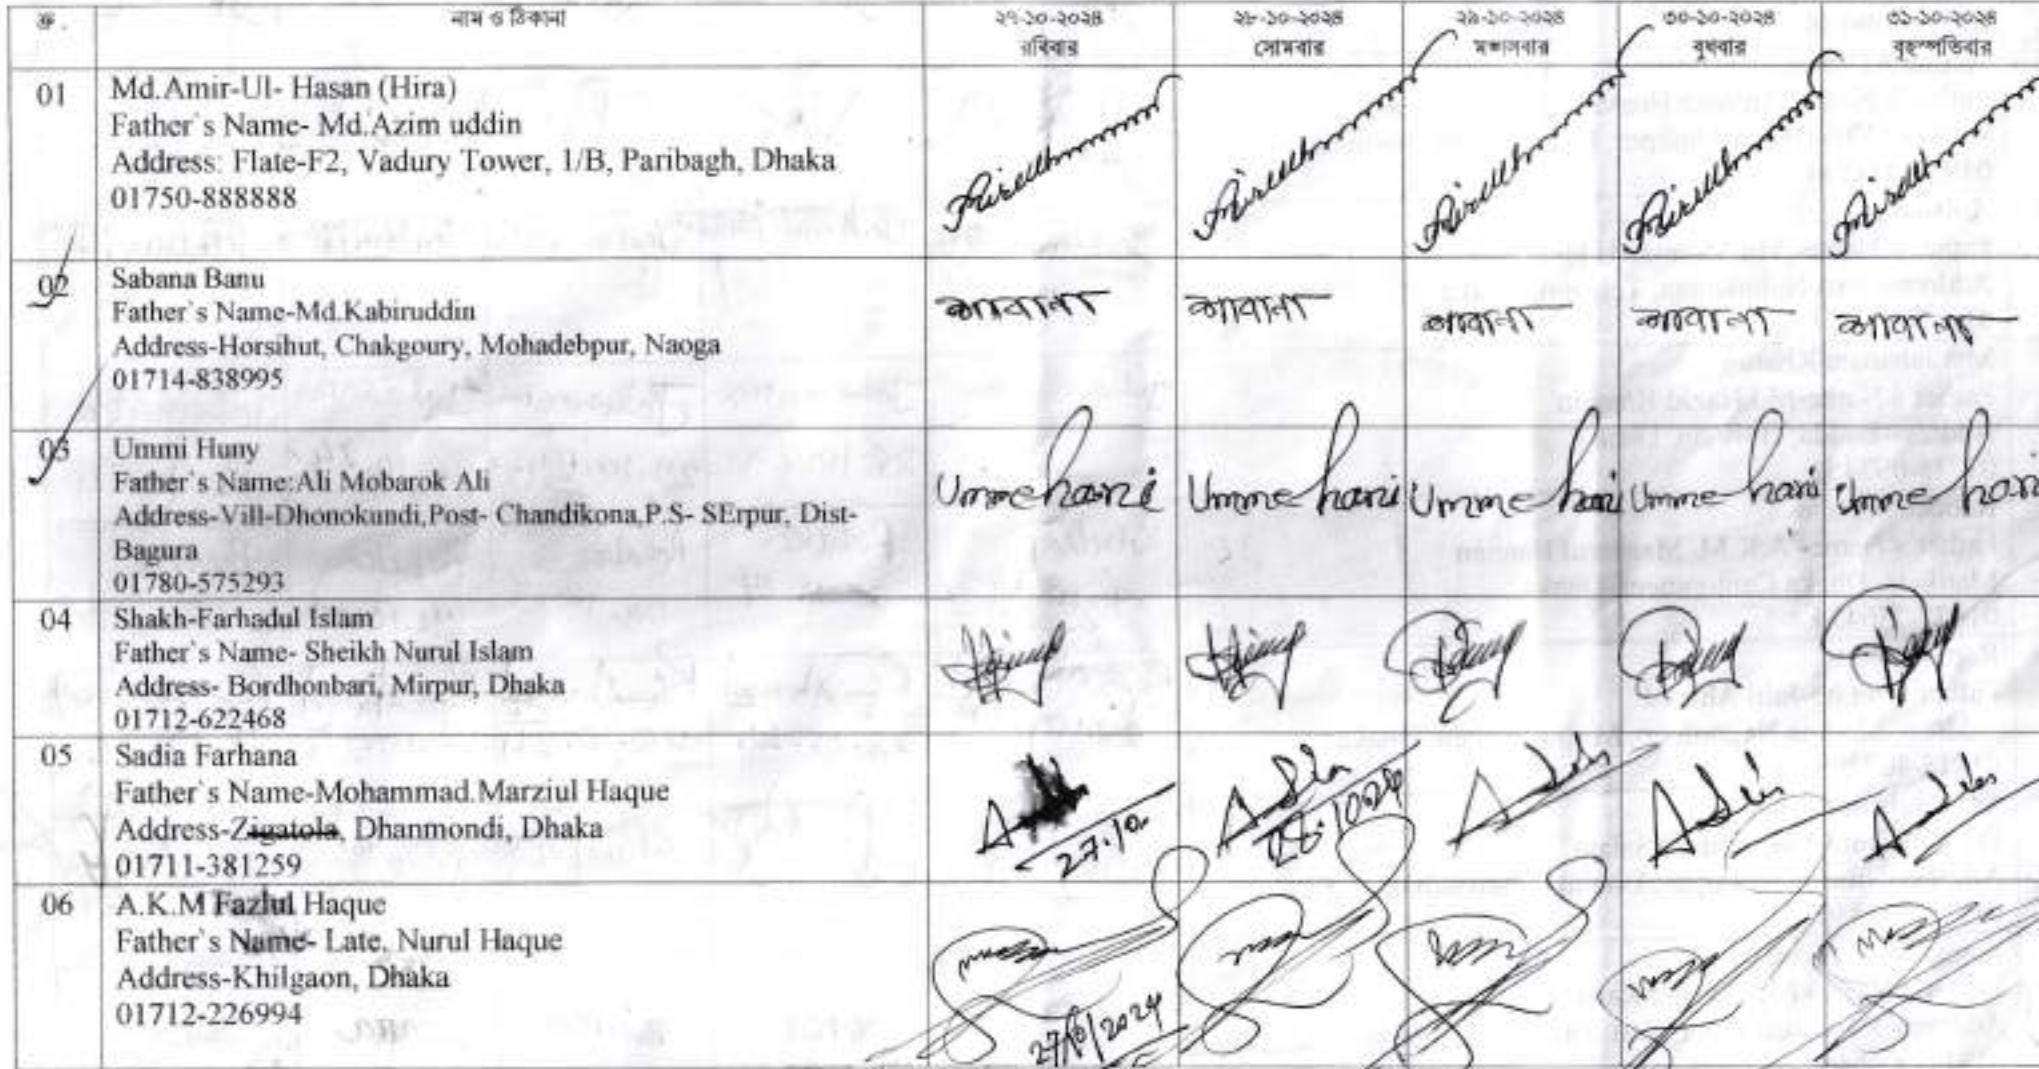 ক্র. নাম ও ঠিকানা ২৭-১০-২০২৪ ২৮-১০-২০২৪ ২৯-১০-২০২৪ ৩০-১০-২০২৪ ৩১-১০-২০২৪
রবিবার সোমবার মঙ্গলবার বুধবার বৃহস্পতিবার
01 Md.Amir-Ul- Hasan (Hira)
Father`s Name- Md.Azim uddin
Address: Flate-F2, Vadury Tower, 1/B, Paribagh, Dhaka
01750-888888
02 Sabana Banu
Father`s Name-Md.Kabiruddin
Address-Horsihut, Chakgoury, Mohadebpur, Naoga
01714-838995
শাবানা শাবানা শাবানা শাবানা শাবানা
03 Ummi Huny
Father`s Name:Ali Mobarok Ali
Address-Vill-Dhonokundi,Post- Chandikona,P.S- SErpur, Dist-
Bagura
01780-575293
Umme hani Umme hani Umme hani Umme hani Umme hani
04 Shakh-Farhadul Islam
Father`s Name- Sheikh Nurul Islam
Address- Bordhonbari, Mirpur, Dhaka
01712-622468
05 Sadia Farhana
Father`s Name-Mohammad.Marziul Haque
Address-Zigatola, Dhanmondi, Dhaka
01711-381259
27.10 28.10.24
06 A.K.M Fazlul Haque
Father`s Name- Late. Nurul Haque
Address-Khilgaon, Dhaka
01712-226994
27/10/2024